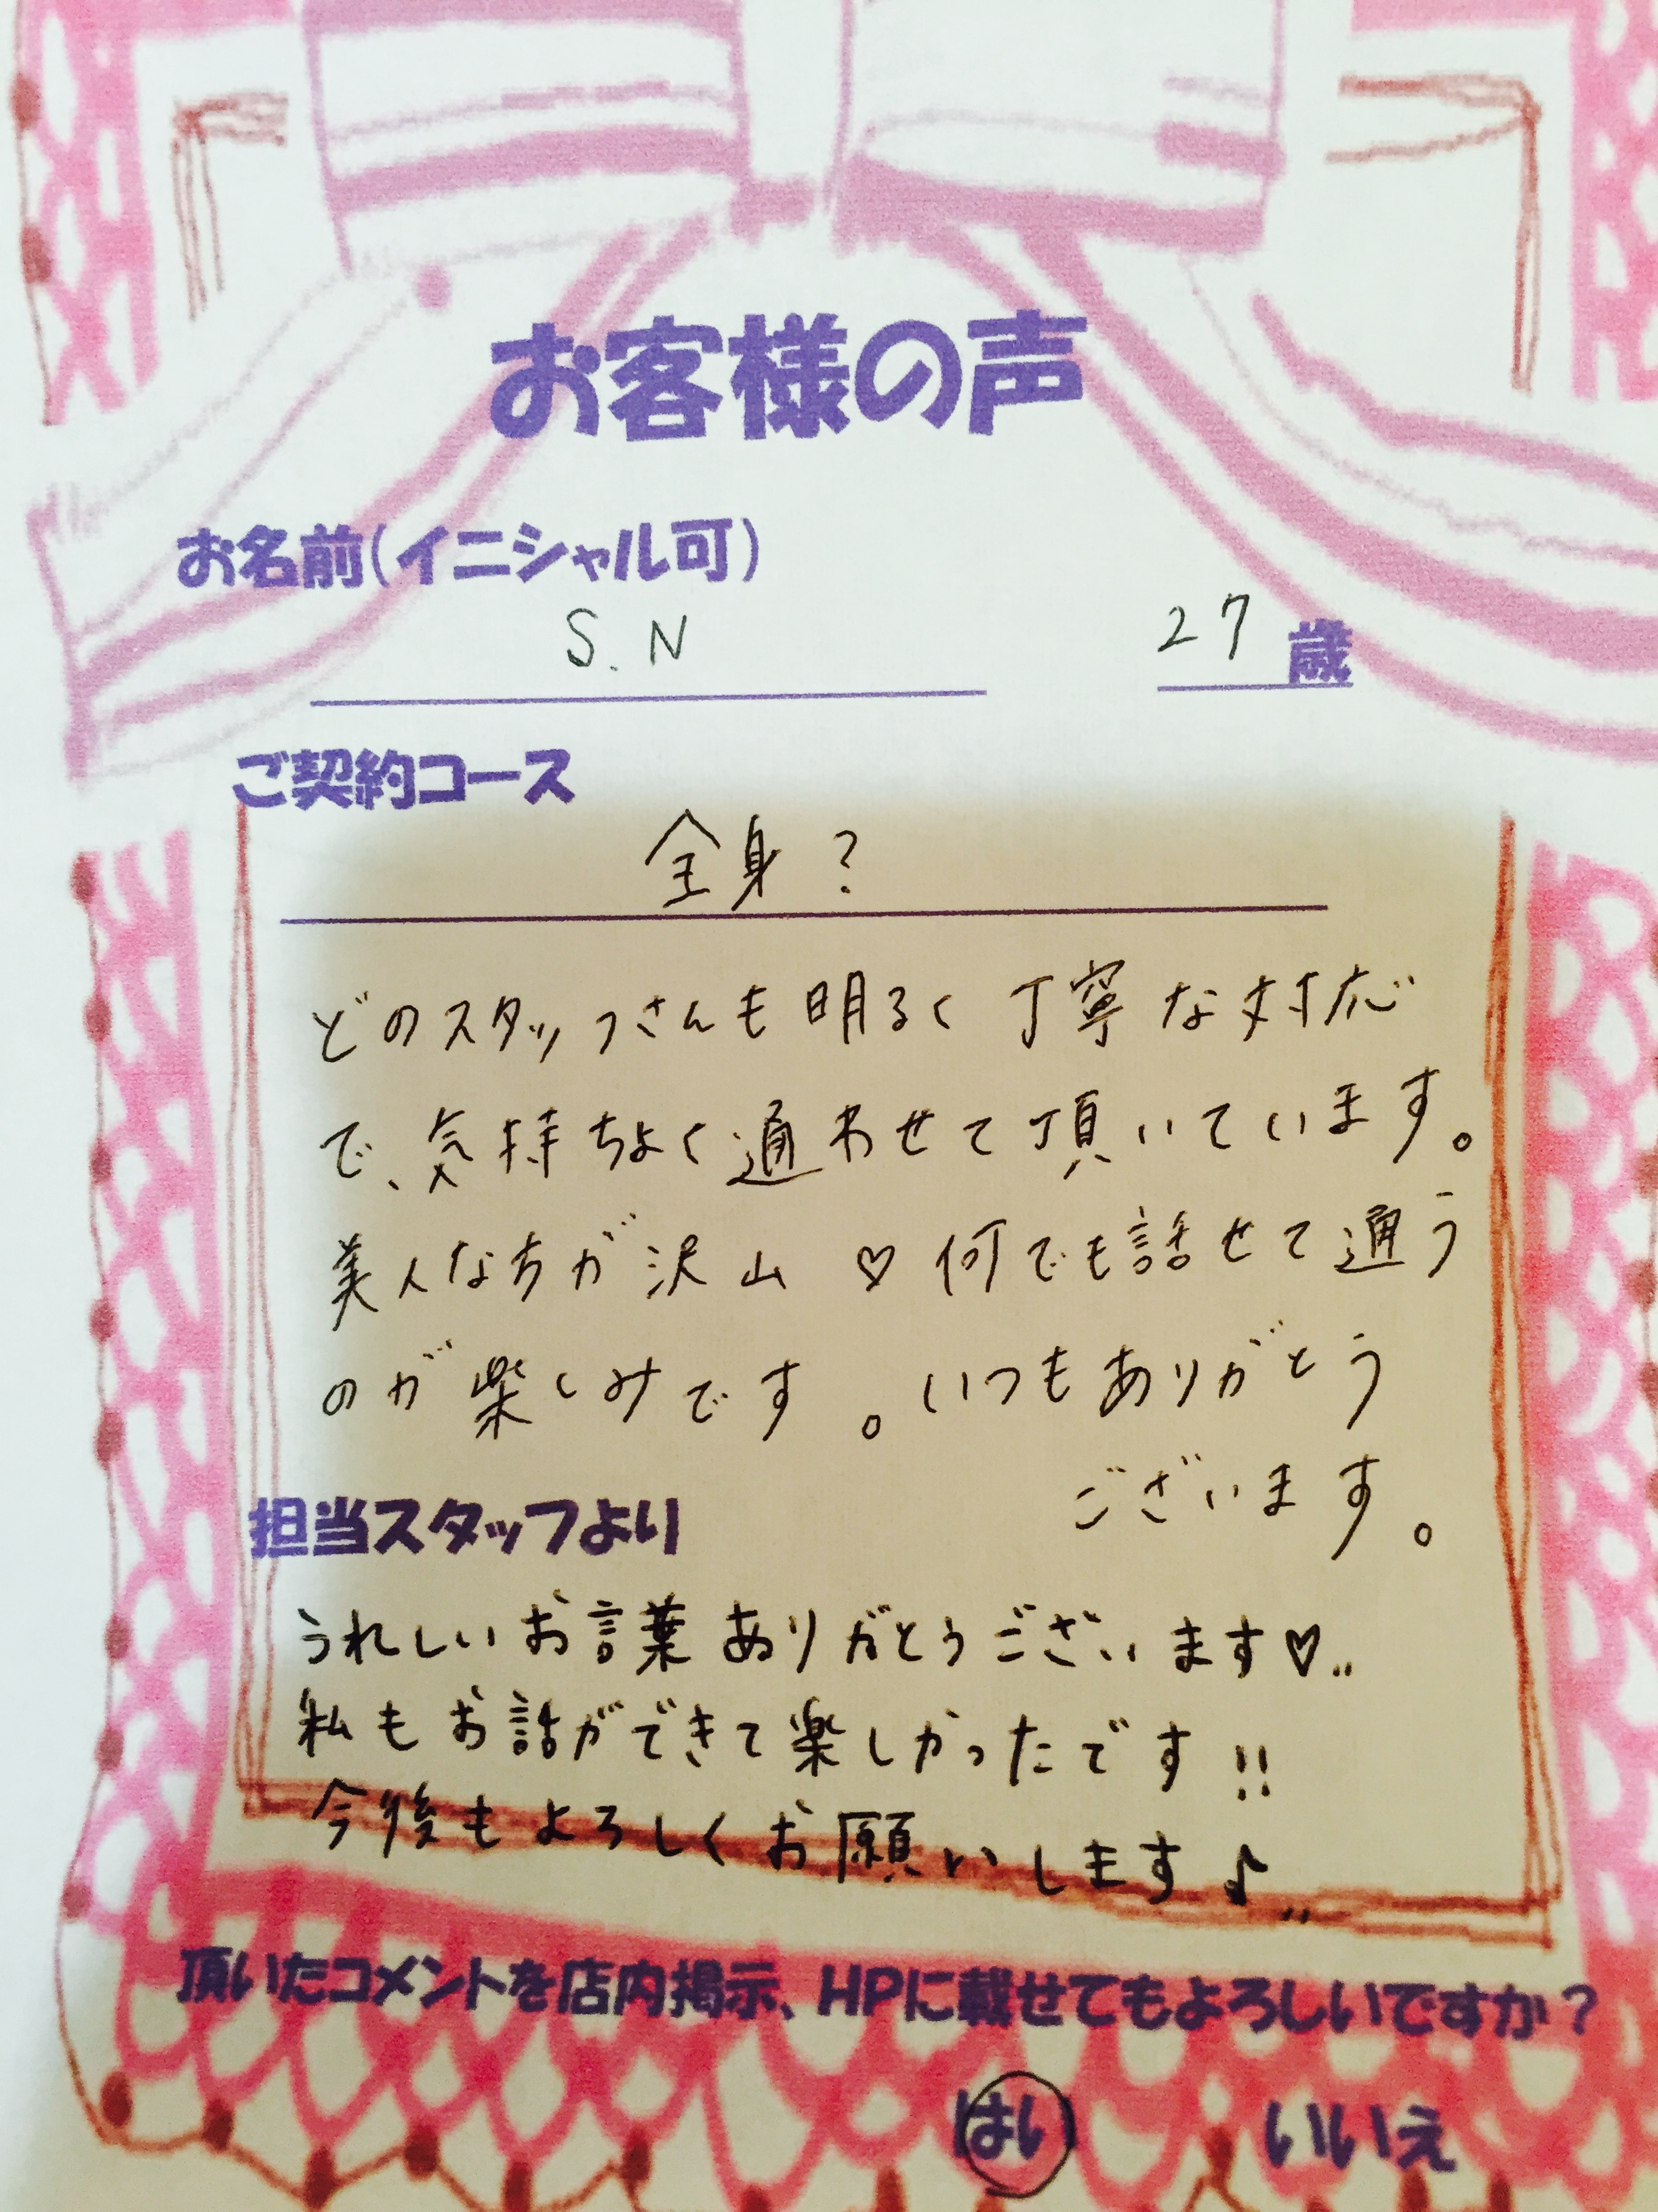 お客様の声
お名前(イニシャル可)
S.N 27歳
ご契約コース
全身?
どのスタッフさんも明るく丁寧な対応
で、気持ちよく通わせて頂いています。
美人な方が沢山♡何でも話せて通う
のが楽しみです。いつもありがとう
ございます。
担当スタッフより
うれしいお言葉ありがとうございます♡..
私もお話ができて楽しかったです!!
今後もよろしくお願いします♪..
頂いたコメントを店内掲示、HPに載せてもよろしいですか?
はい いいえ